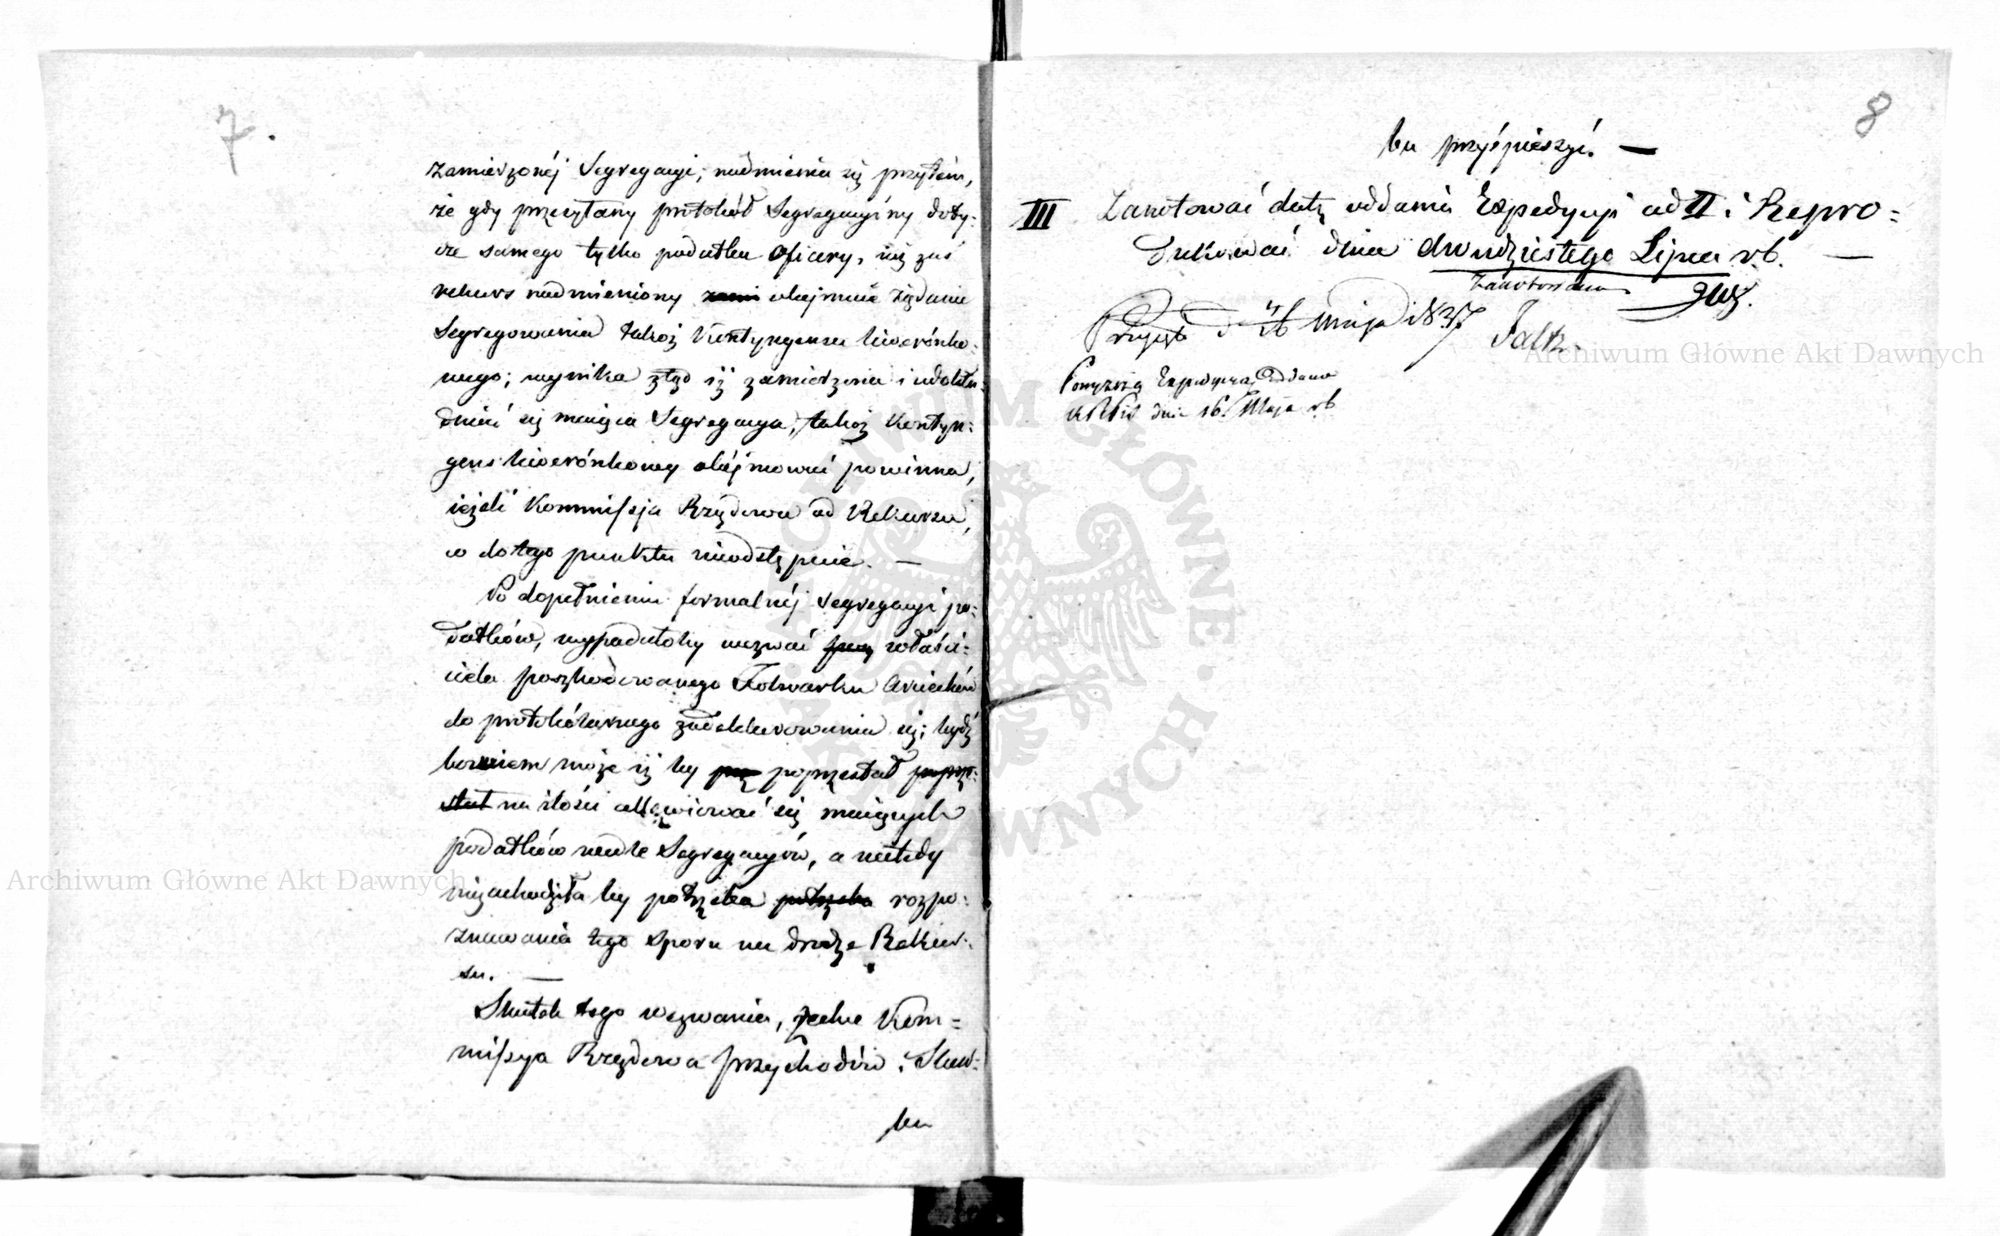 7.
zamierzonéj Segregacyi; nadmienia się przytém,
że gdy przesłany protokół Segregacyiny doty-
cze samego tylko podatku Ofiary, ninieyszy zaś
rekurs nadmieniony obejmuie żądanie
Segregowania takoż Kontyngensu liwerunko-
wego; wynika ztąd iż zamierzona i udokła-
dnić się maiąca Segregacya, takoż Kontyn-
gens liwerunkowy obéjmować powinna,
ieżeli Kommissja Rządowa od Rekursu,
co do tego punktu nieodstąpiła. —
Po dopełnieniu formalnéj Segregacyi po-
datków, wypadałoby wezwać właści-
ciela poszkodowanego Folwarku
do protokólarnego zadeklarowania się; bydź
bowiem może iż by poprzestał
na ilości allewiować się maiących
podatków wedle Segregacyów, a wtedy
niezachodziła by potrzeba potrzeba rozpo-
znawania tego sporu na drodze Rekur-
su. —
Skutek tego wezwania, zechce Kom=
missya Rządowa Przychodów i Skar-
bu
8
bu przyśpieszyć. —
III Zanotować datę oddania Expedycyi ad II i Repro=
dukować dnia dwudziestego Lipca rb. —
Zanotowano
Przyięto d. 4/16 maja 1837
Powyższa Expedycya oddana
dnia 16. Maja rb
Archiwum Główne Akt Dawnych
Archiwum Główne Akt Dawnych
ARCHIWUM GŁÓWNE AKT DAWNYCH